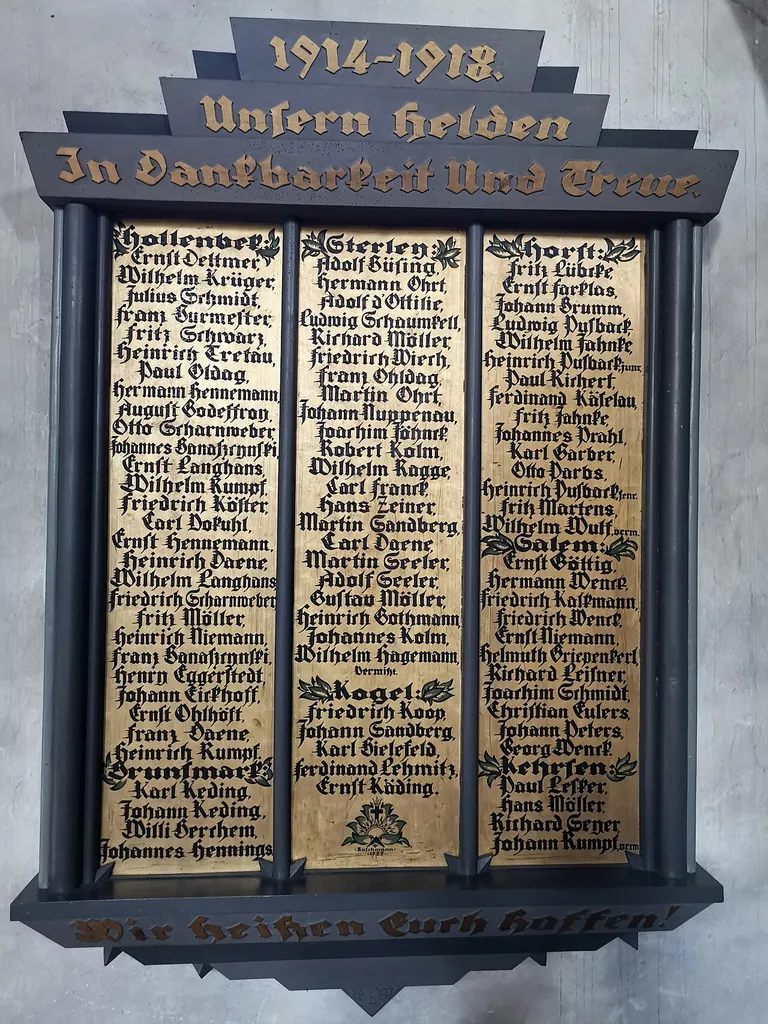 1914-1918.
Unsern Helden
In Dankbarkeit Und Treue.
Hollenbek:
Ernst Dettmer,
Wilhelm Krüger,
Julius Schmidt,
Franz Burmester,
Fritz Schwarz,
Heinrich Tretau,
Paul Oldag,
Hermann Hennemann,
August Godeffroy,
Otto Scharnweber,
Johannes Banaszynski,
Ernst Langhans,
Wilhelm Rumpf,
Friedrich Köster,
Carl Dokuhl,
Ernst Hennemann,
Heinrich Daene,
Wilhelm Langhans,
Friedrich Scharnweber,
Fritz Möller,
Heinrich Niemann,
Franz Banaszynski,
Henry Eggerstedt,
Johann Eickhoff,
Ernst Ohlhöft,
Franz Daene,
Heinrich Rumpf,
Brunsmark:
Karl Keding,
Johann Keding,
Willi Berchem,
Johannes Hennings,
Sterley:
Adolf Büsing,
Hermann Ohrt,
Adolf d'Ottilie,
Ludwig Schaumkell,
Richard Möller,
Friedrich Wiech,
Franz Ohldag,
Martin Ohrt,
Johann Nuppenau,
Joachim Jöhnck,
Robert Kolm,
Wilhelm Ragge,
Carl Franck,
Hans Zeiner,
Martin Sandberg,
Carl Daene,
Martin Seeler,
Adolf Seeler,
Gustav Möller,
Heinrich Gothmann,
Johannes Kolm,
Wilhelm Hagemann,
Vermißt.
Kogel:
Friedrich Koop,
Johann Sandberg,
Karl Bielefeld,
Ferdinand Lehmitz,
Ernst Käding.
Horst:
Fritz Lübcke,
Ernst Farklas,
Johann Brumm,
Ludwig Pusback,
Wilhelm Jahnke,
Heinrich Pusback, junr.
Paul Richert,
Ferdinand Käselau,
Fritz Jahnke,
Johannes Prahl,
Karl Garber,
Otto Parbs,
Heinrich Pusback, senr.
Fritz Martens,
Wilhelm Wulf, verm.
Salem:
Ernst Göttig,
Hermann Wenck,
Friedrich Kalkmann,
Friedrich Wenck,
Ernst Niemann,
Helmuth Griepenkerl,
Richard Leisner,
Joachim Schmidt,
Christian Eulers,
Johann Peters,
Georg Wenck.
Kehrsen:
Paul Lesker,
Hans Möller,
Richard Seyer,
Johann Rumpf, verm
Wir Heißen Euch Hoffen!